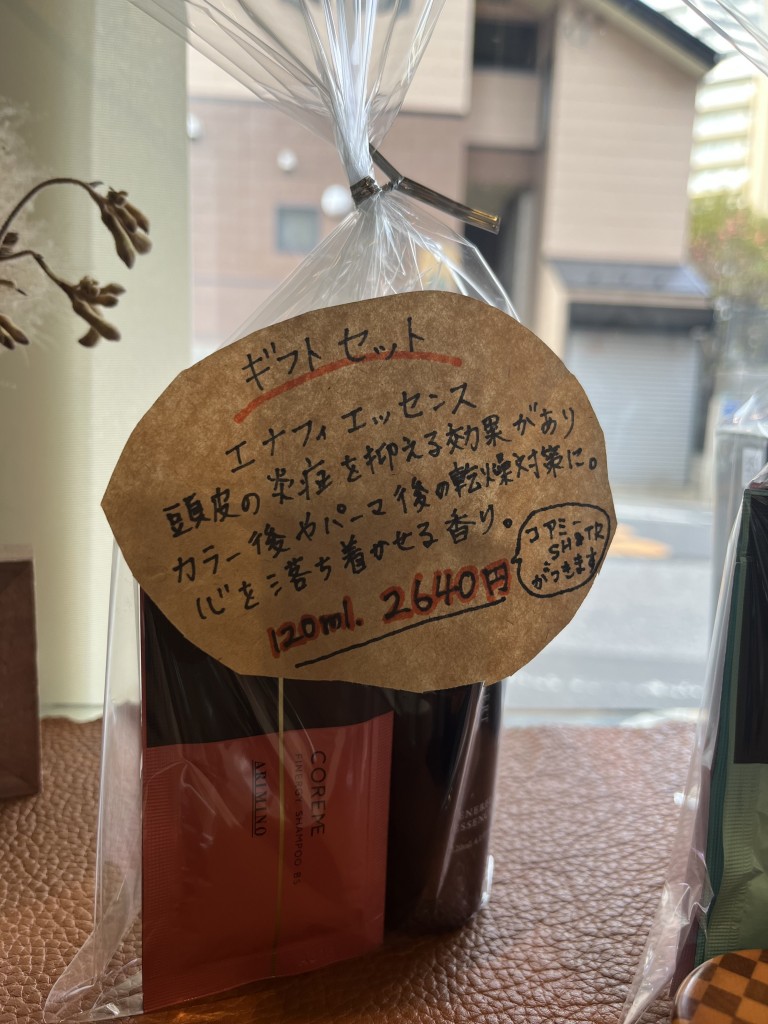 ギフトセット
エナフィエッセンス
頭皮の炎症を抑える効果があり
カラー後やパーマ後の乾燥対策に。
心を落ち着かせる香り。
120ml. 2640円
コアミー
SH&TR
がつきます
COREME
SHAMPOO
ARIMINO